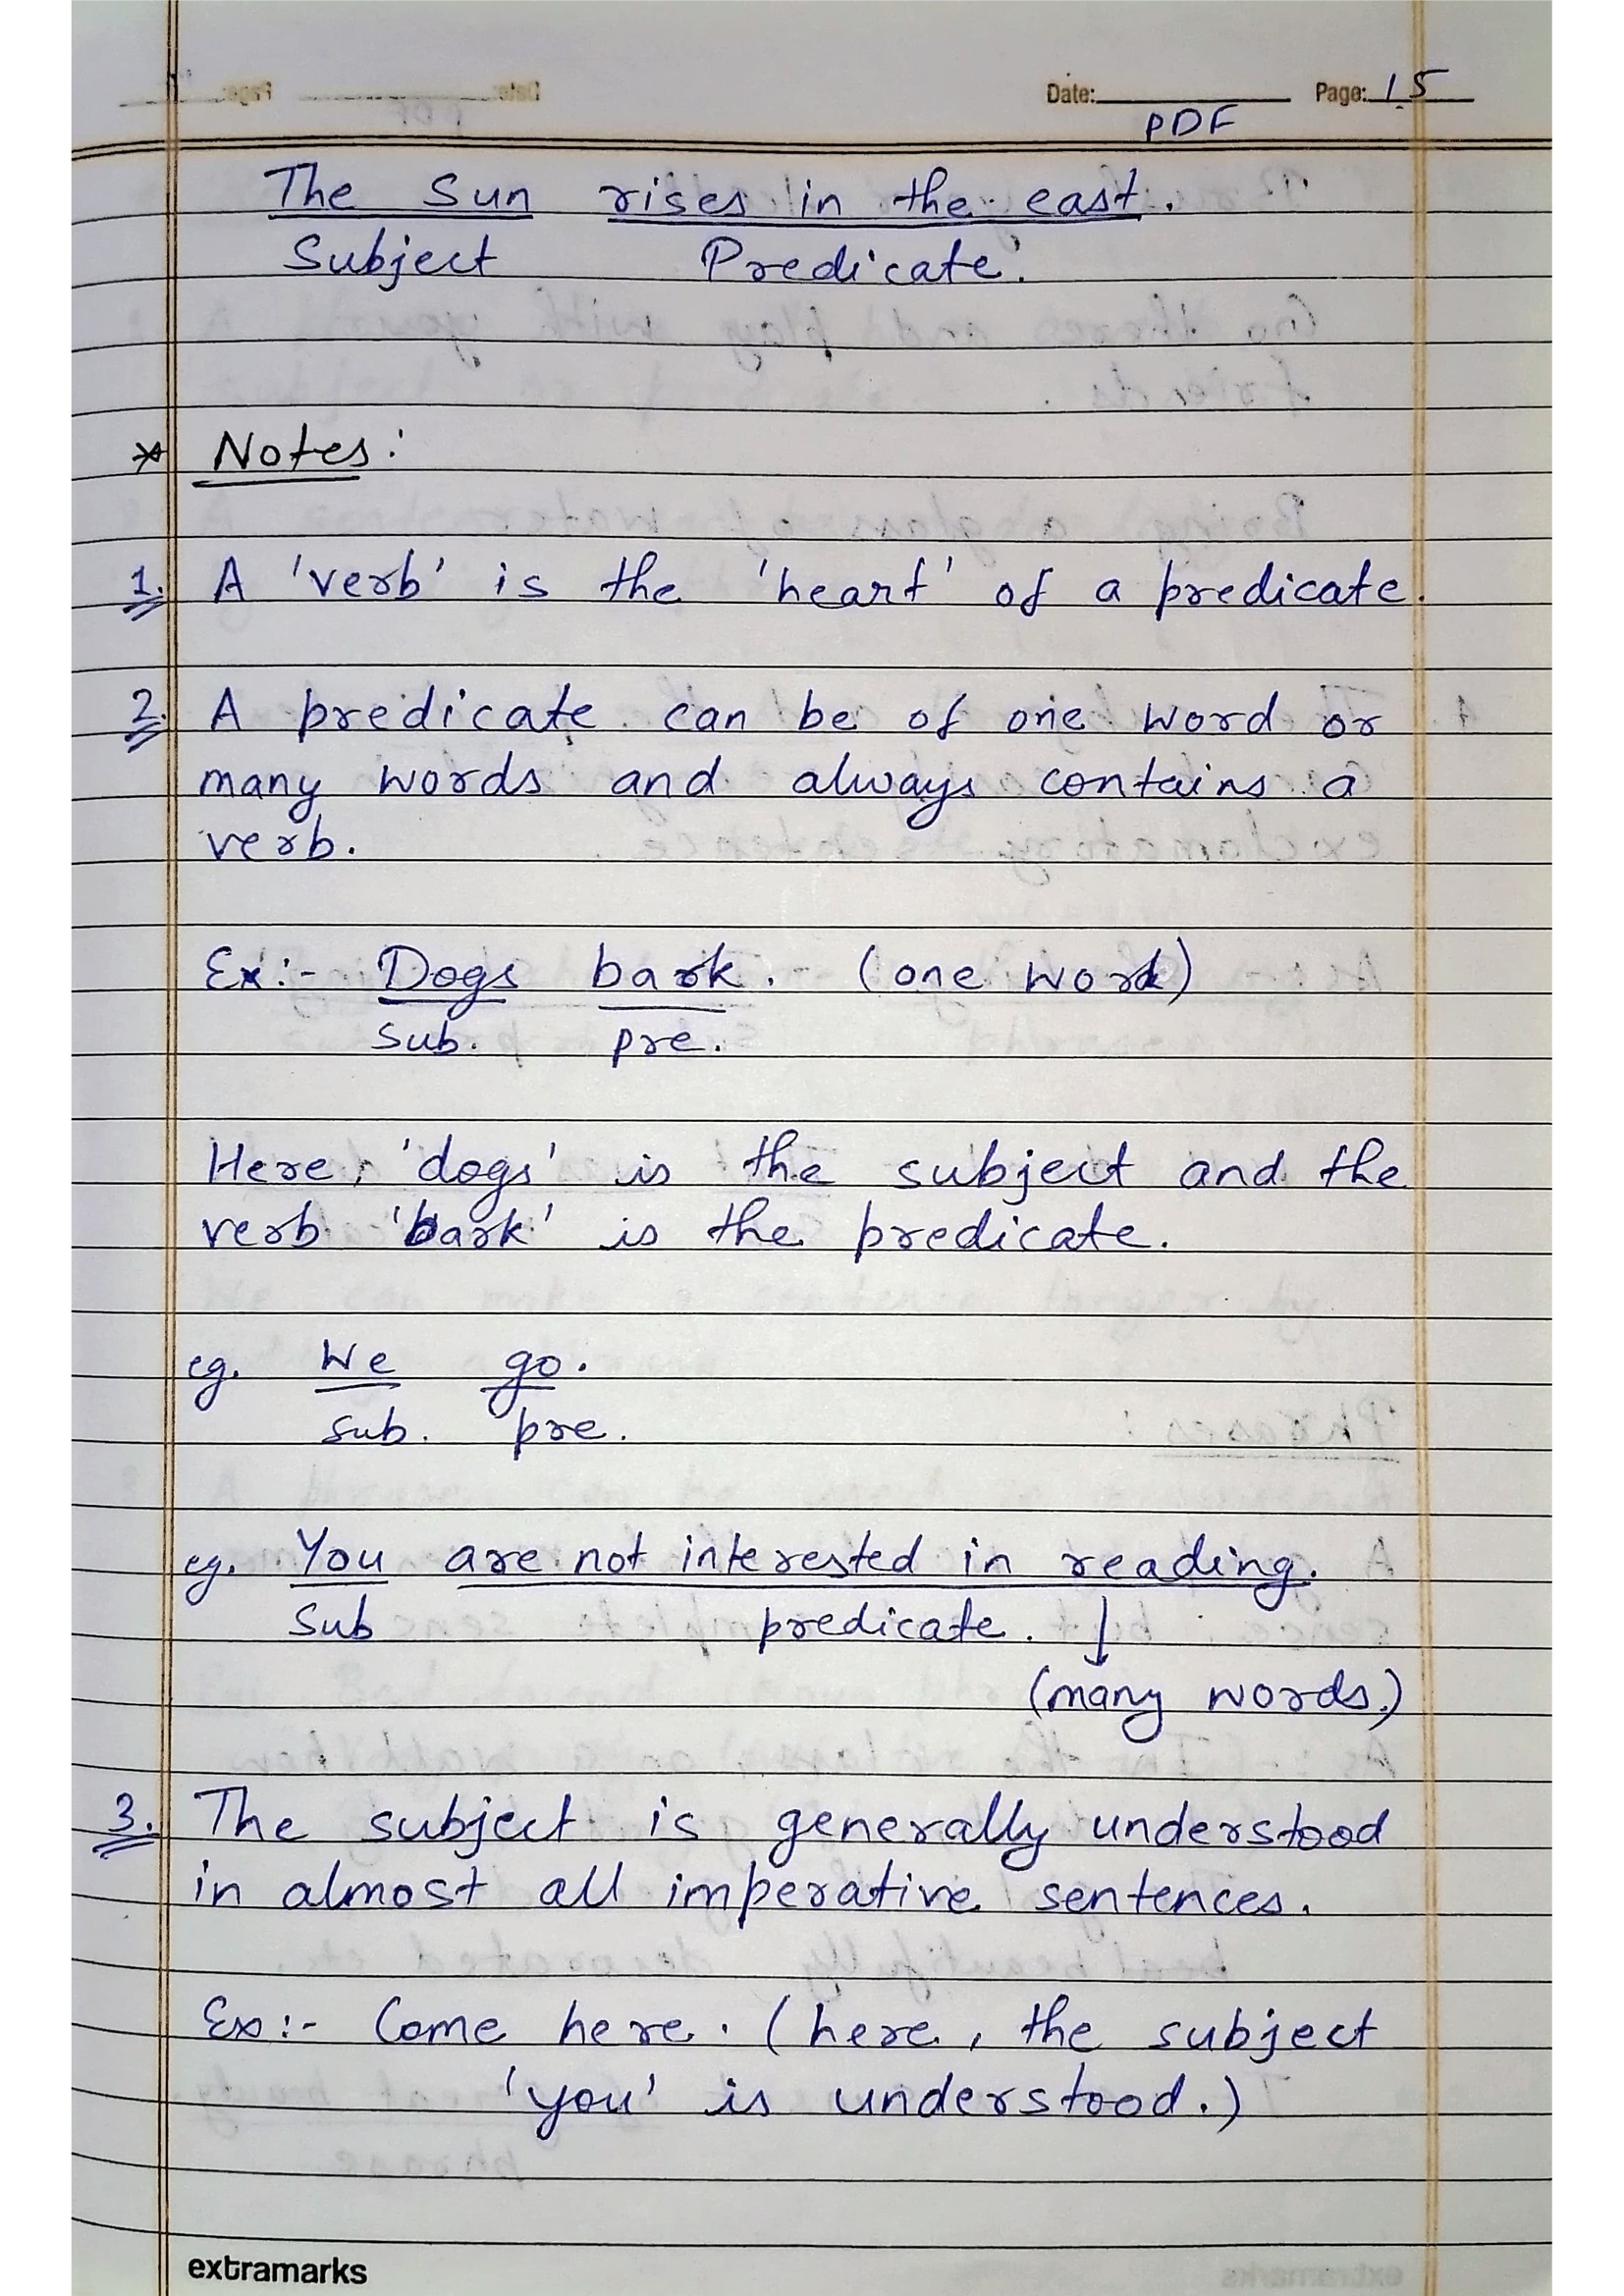 Date: Page: 15
PDF
The Sun rises in the east.
Subject Predicate.
* Notes:
1. A 'verb' is the 'heart' of a predicate.
2. A predicate can be of one word or
many words and always contains a
verb.
Ex:- Dogs bark. (one word)
sub. pre.
Here, 'dogs' is the subject and the
verb 'bark' is the predicate.
eg. We go.
sub. pre.
eg. You are not interested in reading.
Sub predicate. ↓
(many words.)
3. The subject is generally understood
in almost all imperative sentences.
Ex:- Come here. (here, the subject
'you' is understood.)
extramarks